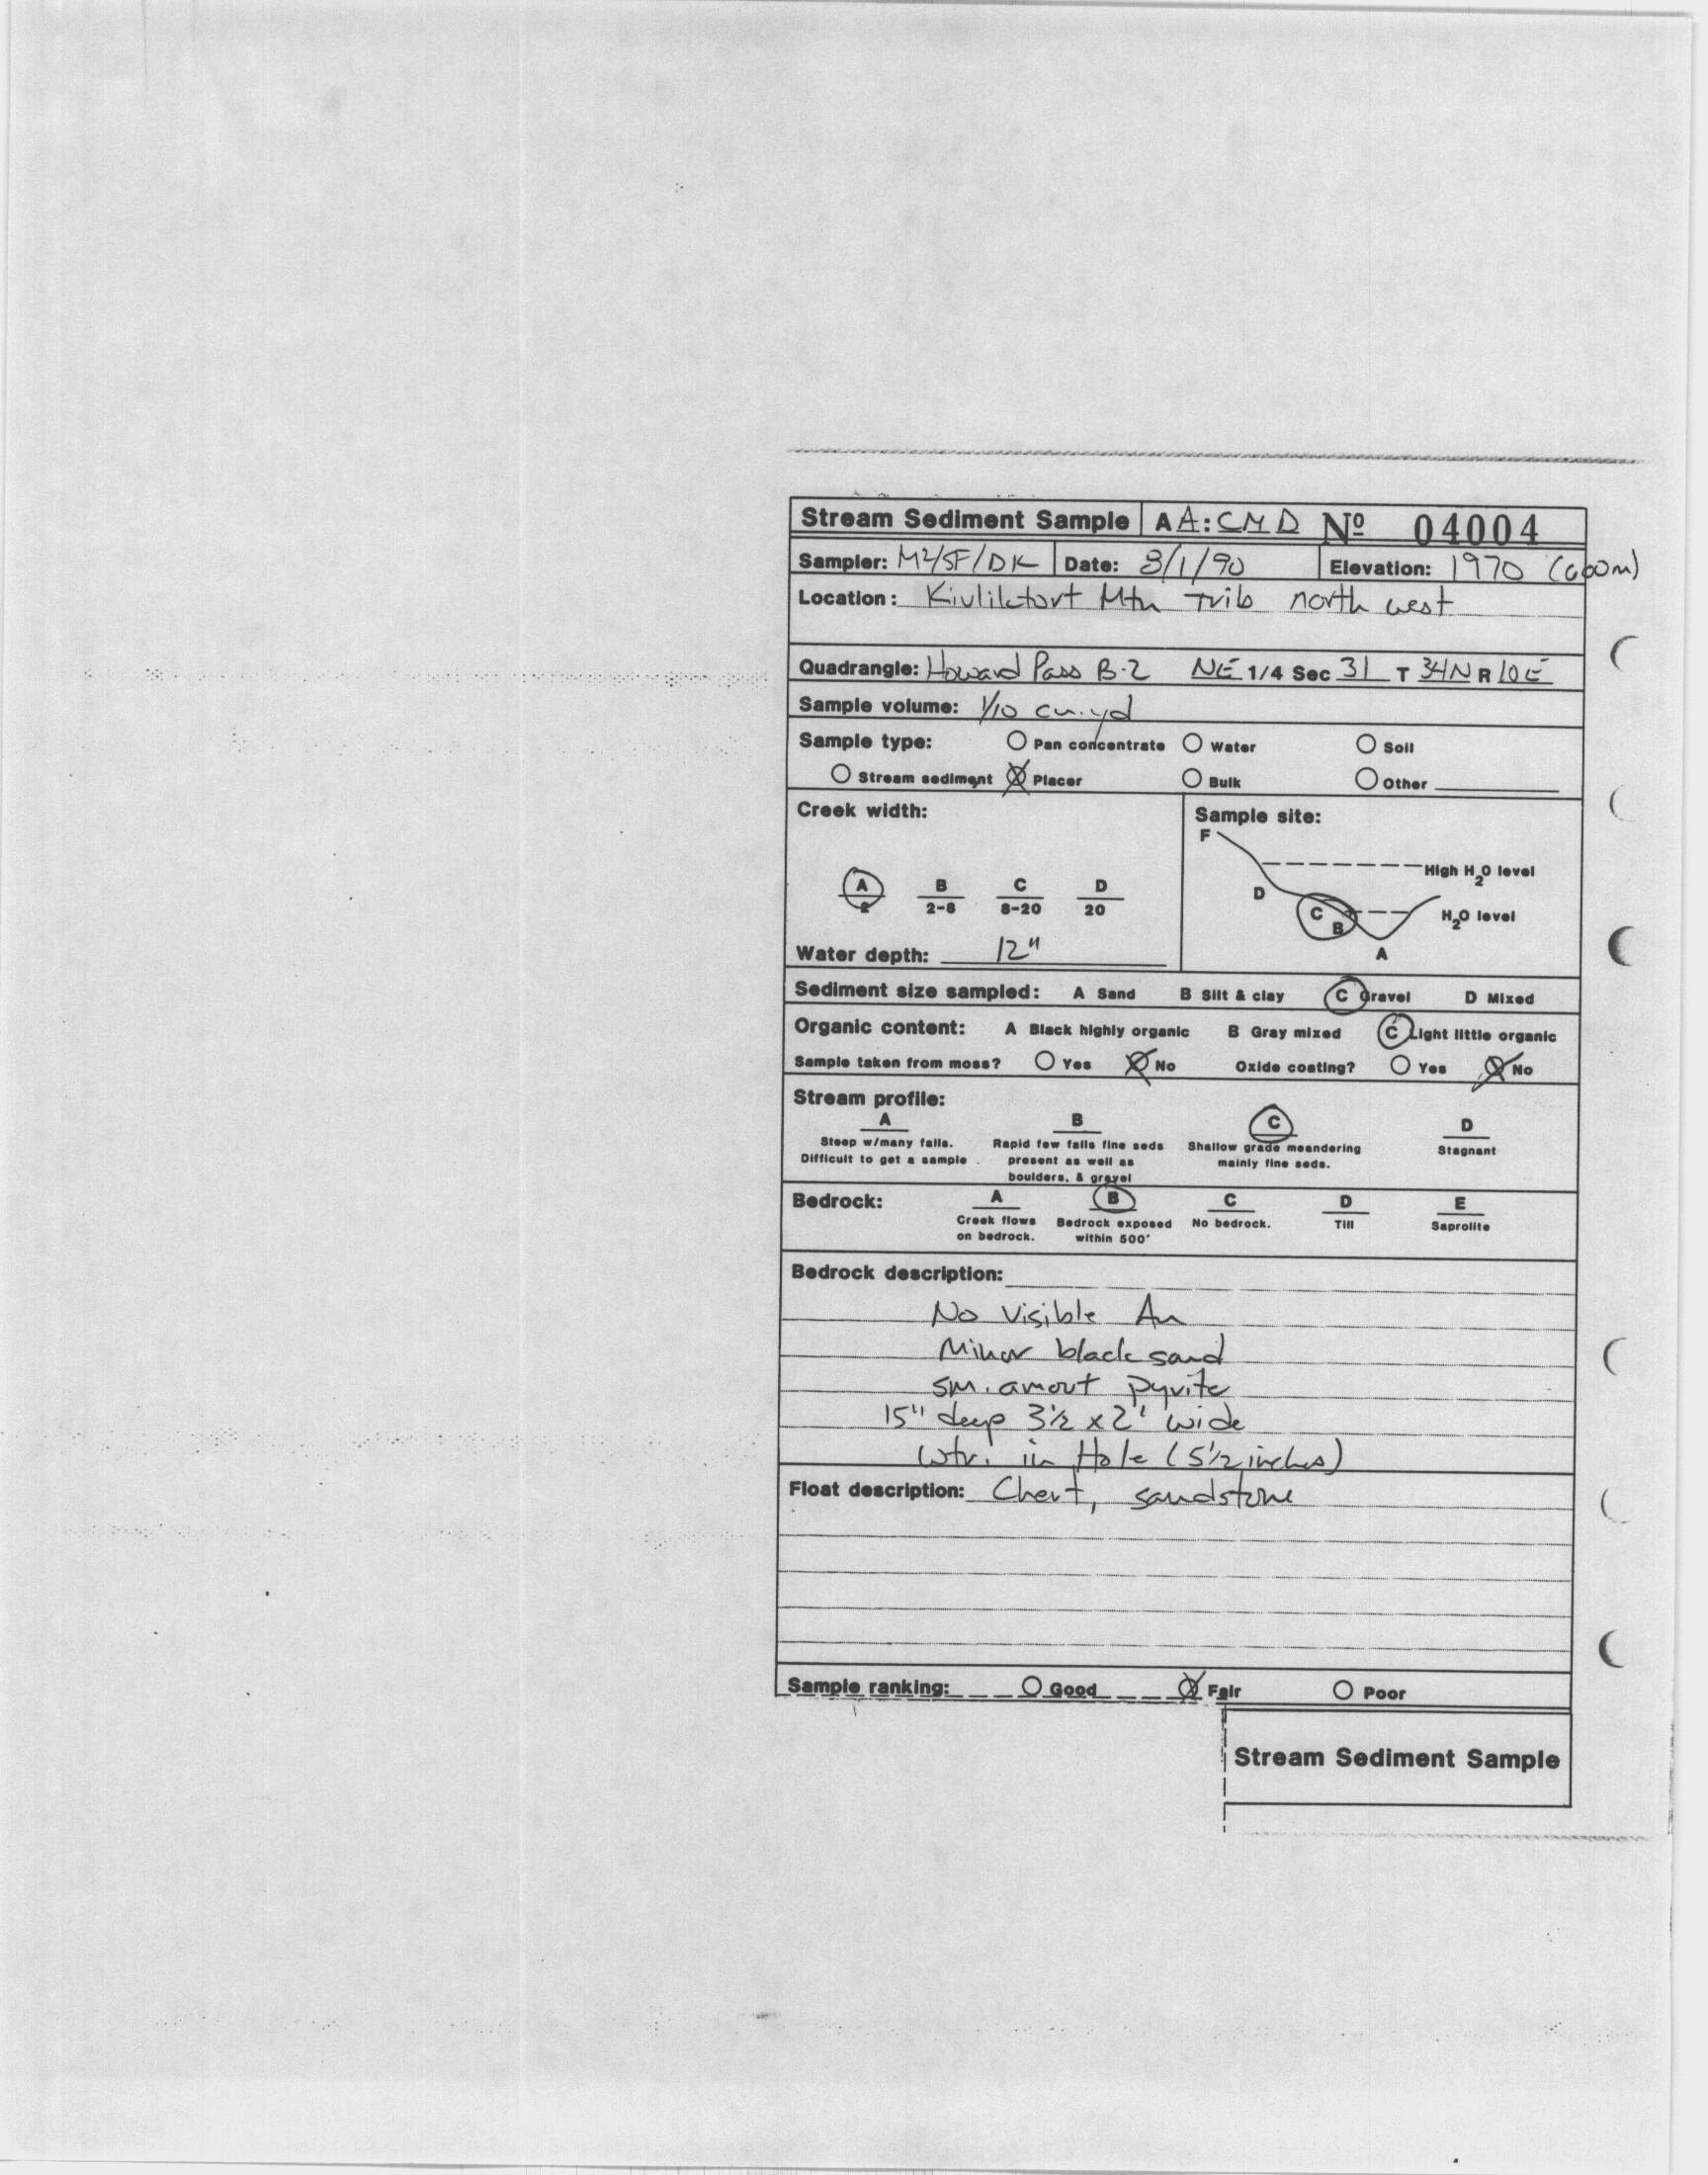 Stream Sediment Sample AA:CMD Nº 04004
Sampler: /SF/DK Date: 8/1/90 Elevation: 1970 (600m)
Location: Kivliktort Mtn Trib north west
Quadrangle: Howard Pass B-2 NE 1/4 Sec 31 T 34N R 10E
Sample volume: 1/10 cu.yd
Sample type: Pan concentrate Water Soil
Stream sediment Placer Bulk Other
Creek width: Sample site:
F
High H2O level
D
A B C D
2 2-8 8-20 20
C H2O level
B
A
Water depth: 12"
Sediment size sampled: A Sand B Silt & clay C Gravel D Mixed
Organic content: A Black highly organic B Gray mixed C Light little organic
Sample taken from moss? Yes No Oxide coating? Yes No
Stream profile:
A B C D
Steep w/many falls. Rapid few falls fine seds Shallow grade meandering Stagnant
Difficult to get a sample present as well as mainly fine seds.
boulders, & gravel
Bedrock: A B C D E
Creek flows Bedrock exposed No bedrock. Till Saprolite
on bedrock. within 500'
Bedrock description:
No Visible Au
Minor black sand
sm. amout pyrite
15" deep 3½ x 2' wide
Wtr. in Hole (5½ inches)
Float description: Chert, sandstone
Sample ranking: Good Fair Poor
Stream Sediment Sample